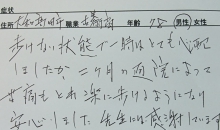 症状
住所 職業 年齢 78 男性 女性
歩けない状態で一時はとても心配
しましたが 二ヶ月の通院によって
痛もとれ楽に歩けるようになり
安心しました 先生には感謝しています